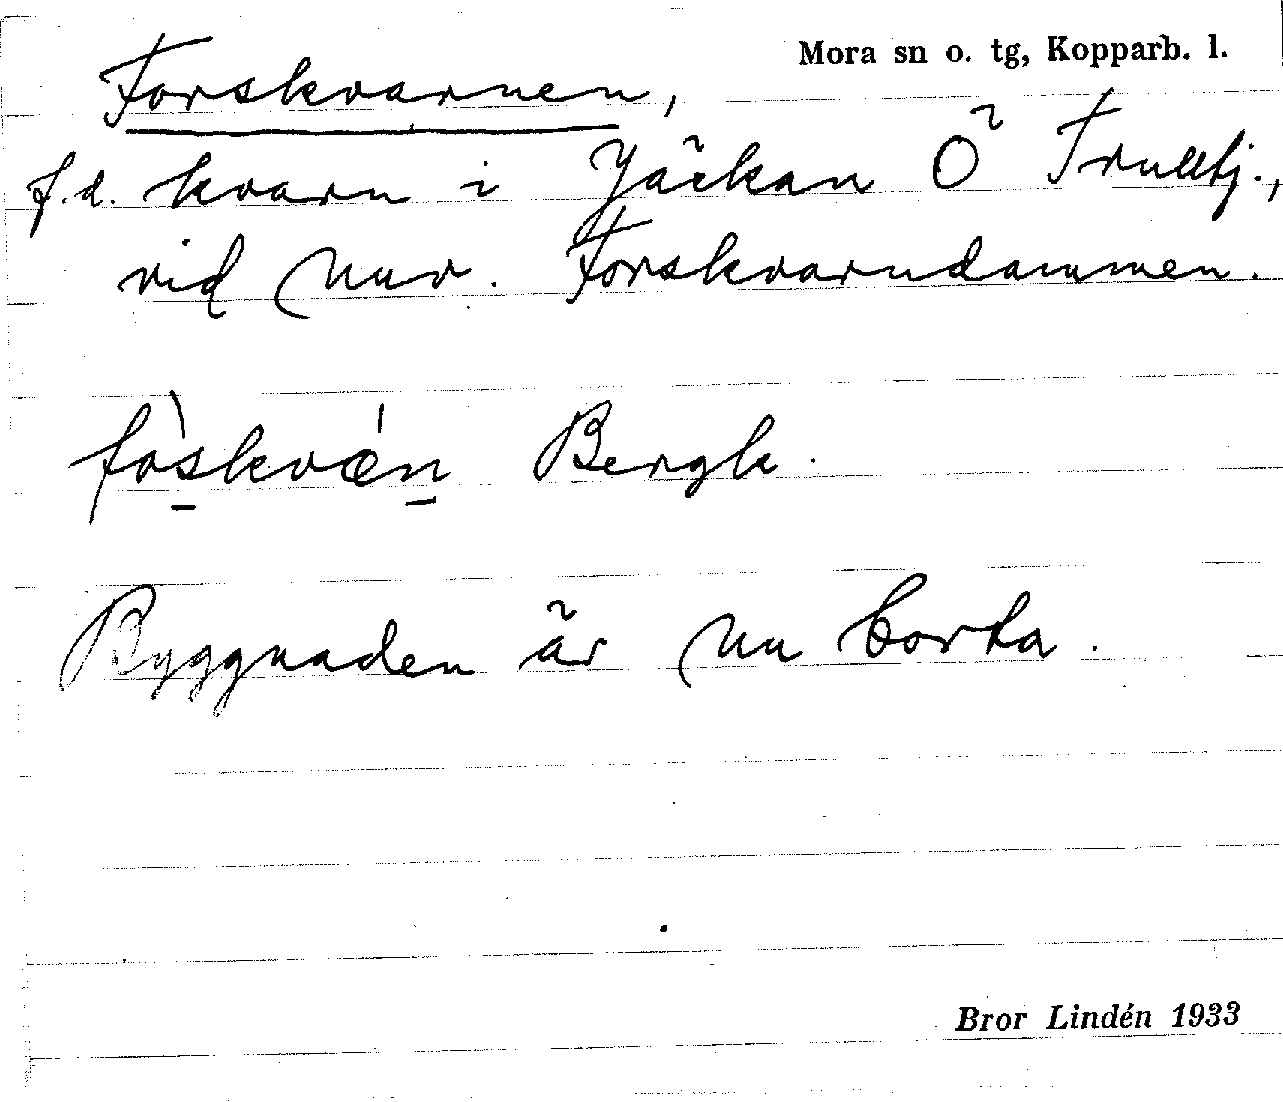 Mora sn o. tg, Kopparb. l.
Forskvarnen,
f.d. kvarn i Jäckan Ö Trulltj.,
vid nuv. Forskvarndammen.
fòskvæ̀n Bergk.
Byggnaden är nu borta.
Bror Lindén 1933